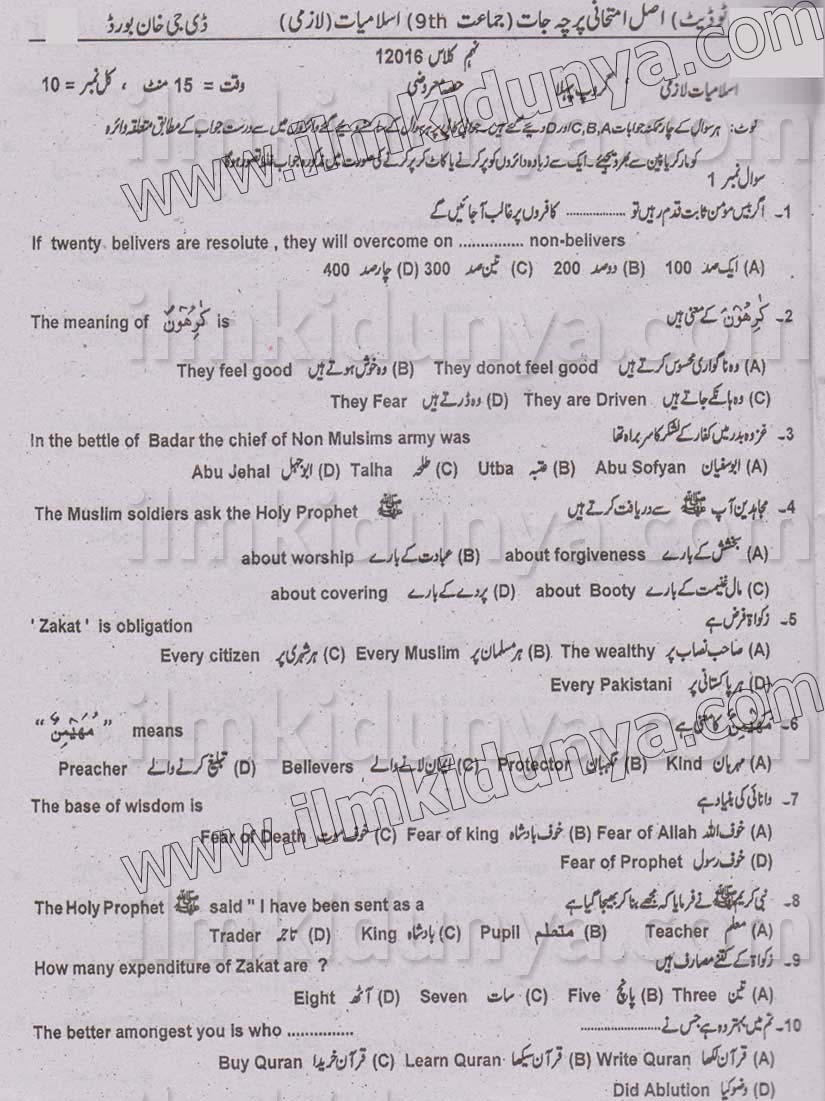 ٹوڈیٹ) اصل امتحانی پرچہ جات (جماعت 9th) اسلامیات (لازمی) ڈی جی خان بورڈ
نہم کلاس 12016
اسلامیات لازمی گروپ پہلا حصہ معروضی وقت = 15 منٹ ، کل نمبر = 10
نوٹ: ہر سوال کے چار ممکنہ جوابات C,B,A اور D دیئے گئے ہیں۔ جوابی کاپی پر ہر سوال کے سامنے دیئے گئے دائروں میں سے درست جواب کے مطابق متعلقہ دائرہ
کو مارکر یا پین سے بھر دیجئے۔ ایک سے زیادہ دائروں کو پر کرنے یا کاٹ کر پر کرنے کی صورت میں مذکورہ جواب غلط تصور ہو گا
سوال نمبر 1
1۔ اگر بیس مومن ثابت قدم رہیں تو ............... کافروں پر غالب آجائیں گے
If twenty belivers are resolute , they will overcome on ............... non-belivers
(A) ایک صد 100 (B) دو صد 200 (C) تین صد 300 (D) چار صد 400
2۔ كٰرِهُوْنَ کے معنی ہیں The meaning of كٰرِهُوْنَ is
(A) وہ ناگواری محسوس کرتے ہیں They donot feel good (B) وہ خوش ہوتے ہیں They feel good
(C) وہ ہانکے جاتے ہیں They are Driven (D) وہ ڈرتے ہیں They Fear
3۔ غزوہ بدر میں کفار کے لشکر کا سربراہ تھا In the bettle of Badar the chief of Non Mulsims army was
(A) ابو سفیان Abu Sofyan (B) عتبہ Utba (C) طلحہ Talha (D) ابو جہل Abu Jehal
4۔ مجاہدین آپ ﷺ سے دریافت کرتے ہیں The Muslim soldiers ask the Holy Prophet ﷺ
(A) بخشش کے بارے about forgiveness (B) عبادت کے بارے about worship
(C) مال غنیمت کے بارے about Booty (D) پردے کے بارے about covering
5۔ زکواۃ فرض ہے ' Zakat ' is obligation
(A) صاحب نصاب پر The wealthy (B) ہر مسلمان پر Every Muslim (C) ہر شہری پر Every citizen
(D) ہر پاکستانی پر Every Pakistani
6۔ مُهَيْمِنُ کا معنی ہے “ مُهَيْمِنُ ” means
(A) مہربان Kind (B) نگہبان Protector (C) ایمان لانے والے Believers (D) تبلیغ کرنے والے Preacher
7۔ دانائی کی بنیاد ہے The base of wisdom is
(A) خوف اللہ Fear of Allah (B) خوف بادشاہ Fear of king (C) خوف موت Fear of Death
(D) خوف رسول Fear of Prophet
8۔ نبی کریم ﷺ نے فرمایا کہ مجھے بنا کر بھیجا گیا ہے The Holy Prophet ﷺ said " I have been sent as a
(A) معلم Teacher (B) متعلم Pupil (C) بادشاہ King (D) تاجر Trader
9۔ زکواۃ کے کتنے مصارف ہیں How many expenditure of Zakat are ?
(A) تین Three (B) پانچ Five (C) سات Seven (D) آٹھ Eight
10۔ تم میں بہتر وہ ہے جس نے ............... The better amongest you is who ...............
(A) قرآن لکھا Write Quran (B) قرآن سیکھا Learn Quran (C) قرآن خریدا Buy Quran
(D) وضو کیا Did Ablution
www.ilmkidunya.com
www.ilmkidunya.com
ilmkidunya.com
ilmkidunya.com
ilmkidunya.com
ilmkidunya.com
ilmkidunya.com
ilmkidunya.com